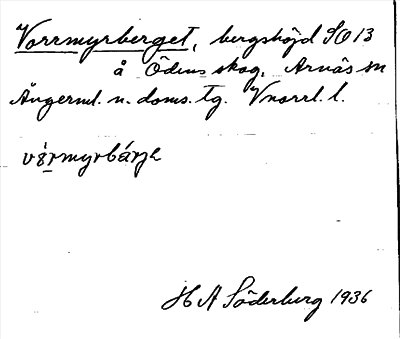 Vorrmyrberget, bergshöjd SO 13
å Ödens skog, Arnäs sn
Ångerml. n. doms. tg. Vnorrl. l.
vò̤rmyrbárjə
H A Söderberg 1936